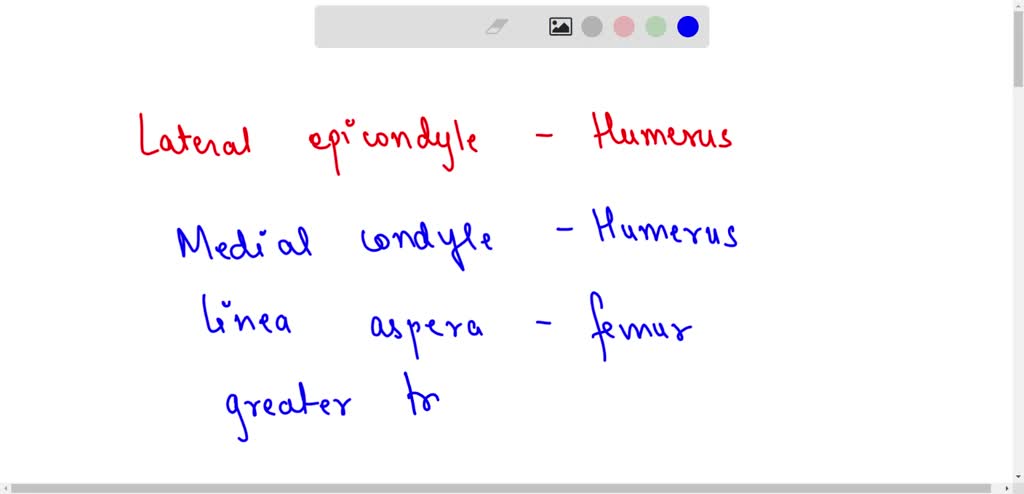 Lateral epicondyle - Humerus
Medial condyle - Humerus
linea aspera - femur
greater tr